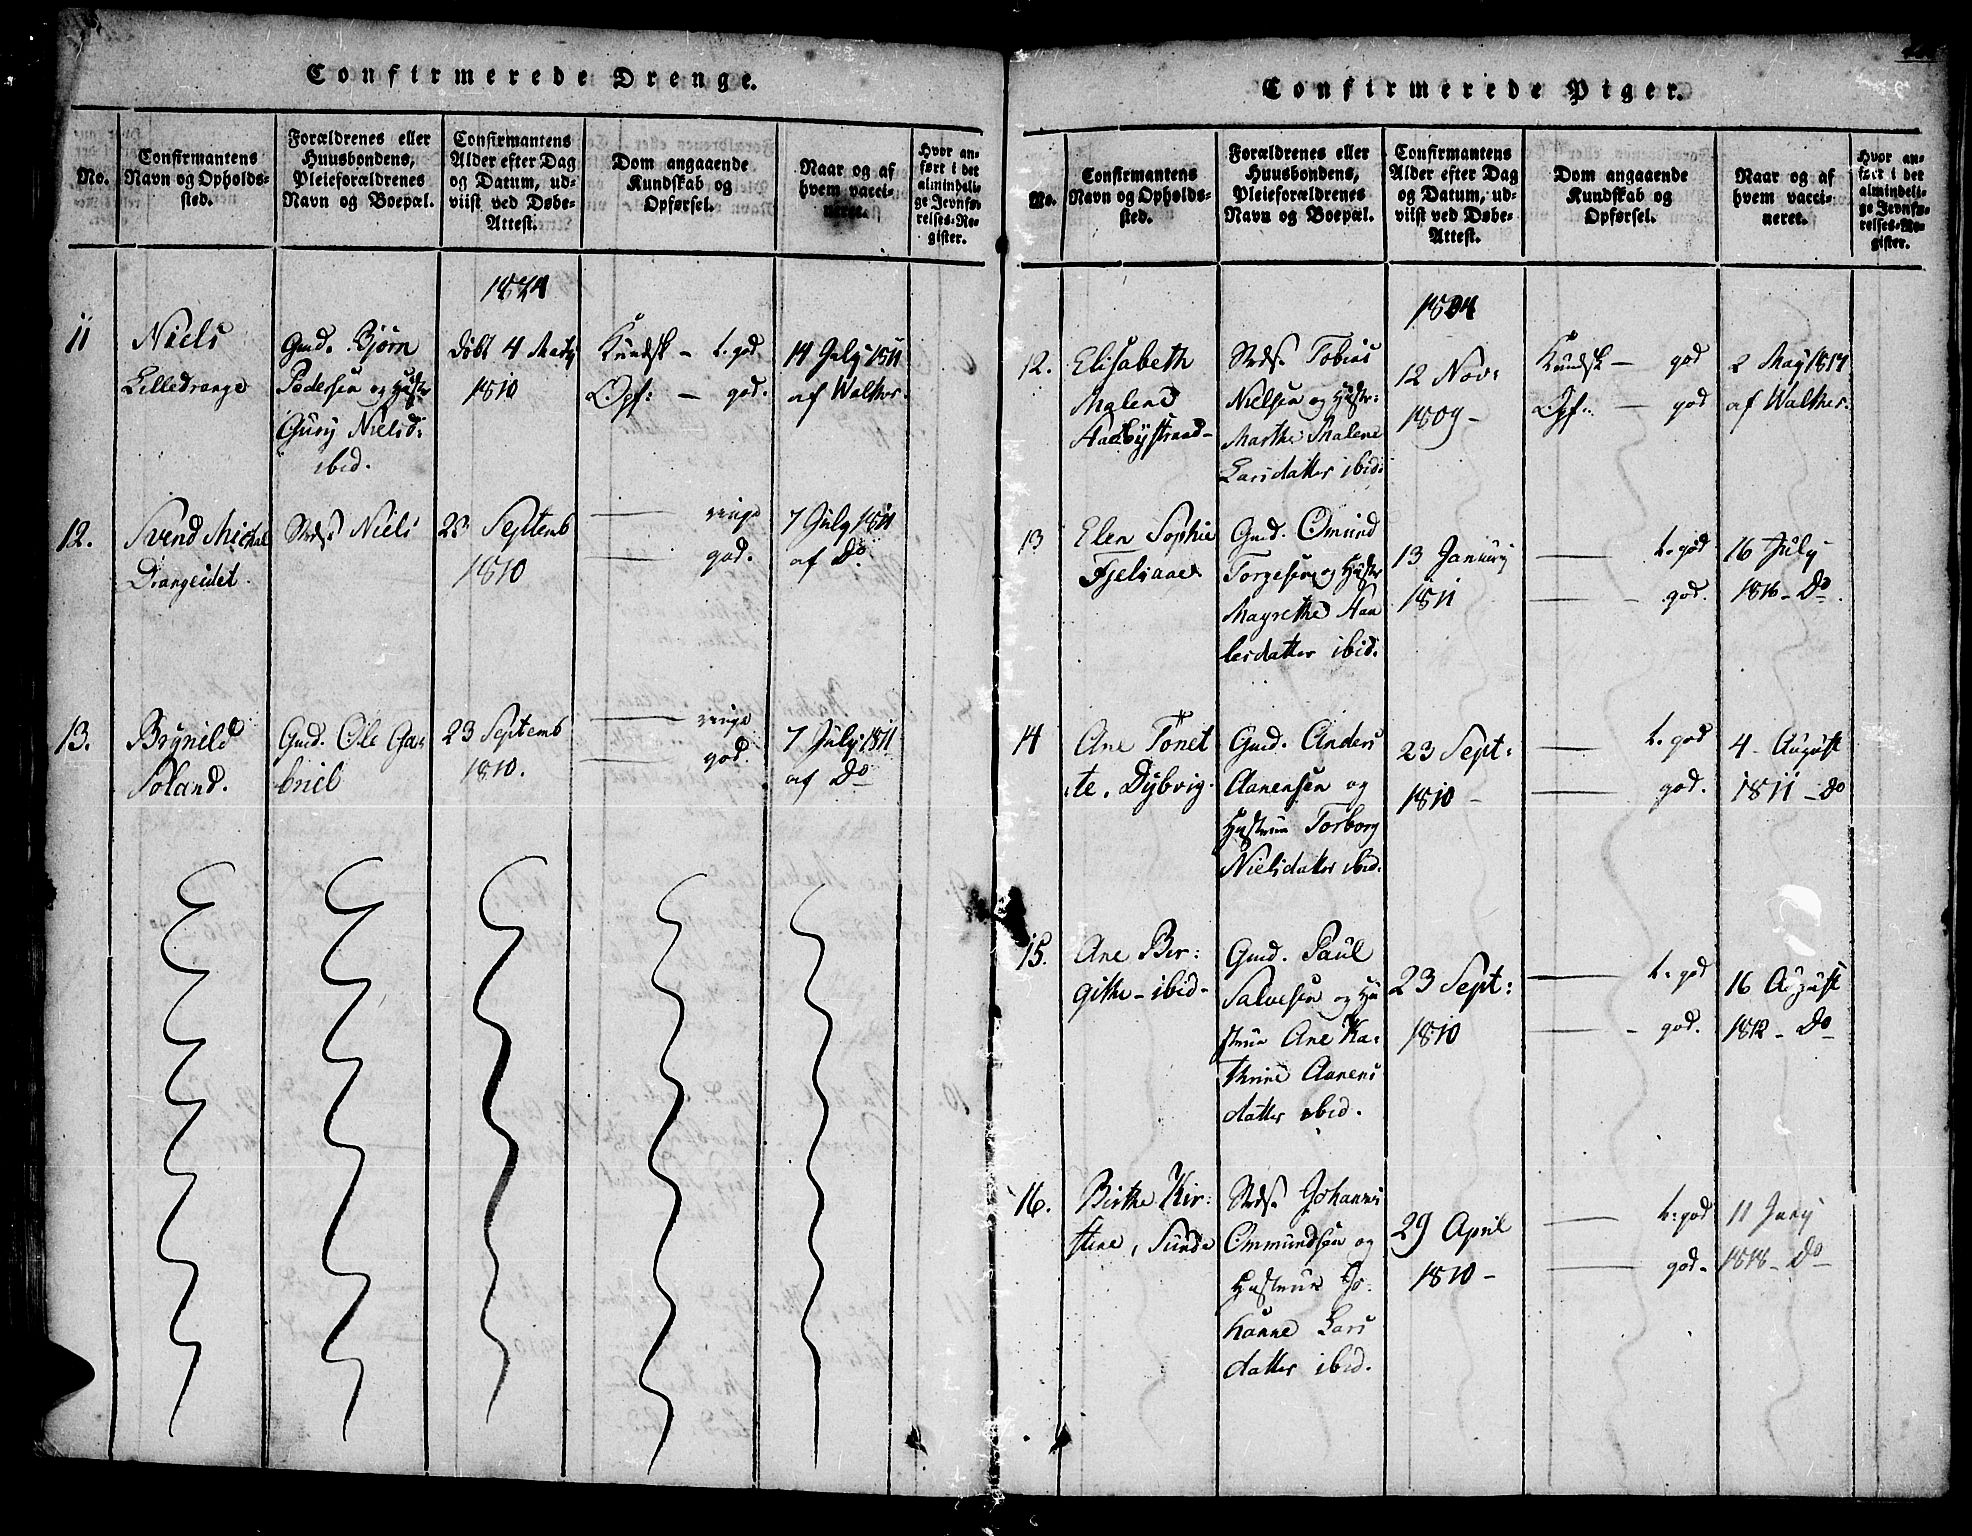 Confirmerede Drenge.
No.
Confirmantens
Navn og Opholds-
sted.
Forældrenes eller
Huusbondens,
Pleieforældrenes
Navn og Boepæl.
Confirmantens
Alder efter Dag
og Datum, ud-
viist ved Døbe-
Attest.
Dom angaaende
Kundskab og
Opførsel.
Naar og af
hvem vacci-
neret.
Hvor an-
ført i det
almindeli-
ge Jevnfø-
relses-Re-
gister.
11
Niels
Lilledrange
Gmd. Bjørn
Pedersen og Hustr
Gurj Nielsd:
ibid.
døbt 4 Martj
1810
Kundsk - t. god
Opf: - god.
14 July 1811
af Walther.
12.
Svend Michal
Drangeidet.
Strds. Niels
23 Septemb
1810
ringe
god.
7 July 1811
af Do
13.
Brynild
Soland.
Gmd. Ole Ga-
briel
23 Septemb
1810.
ringe
god.
7 July 1811
af Do
Confirmerede Piger.
No.
Confirmantens
Navn og Opholds-
sted.
Forældrenes eller
Huusbondens,
Pleieforældrenes
Navn og Boepæl.
Confirmantens
Alder efter Dag
og Datum, ud-
viist ved Døbe-
Attest.
Dom angaaende
Kundskab og
Opførsel.
Naar og af
hvem vacci-
neret.
Hvor an-
ført i det
almindeli-
ge Jevnfø-
relses-Re-
gister.
12.
Elisabeth
Malene
Strds. Tobias
Nielsen og Hustr:
Marthe Malene
Larsdatter ibid:
12 Nov:
1809 -
Kundsk - god
Opf: - god
2 May 1817
af Walther.
13
Elen Sophie
Fjelsaae
Gmd. Omund
Torgesen og Hustr
Magrethe Aan
lesdatter ibid.
13 January
1811
t. god
god.
16 July
1816 - Do.
14
Ane Tonet
te, Dybvig.
Gmd. Anders
Aanensen og
Hustrue Torborg
Nielsdatter ibid.
23 Sept:
1810 -
t. god
god.
4 - August
1811 - Do
15.
Ane Ber:
githe - ibid -
Gmd. Paul
Salvesen og Hu
strue Ane Ka-
thrine Aanens
datter ibid.
23 Sept:
1810
t: god
god.
16 August
1812 - Do
16.
Birthe Kir:
stine, Sunde
Strds. Johannes
Ommundsen og
Hustrue Jo-
hanne Lars
datter ibid.
29 April
1810 -
t: god
god -
11 Juny
1818 - Do